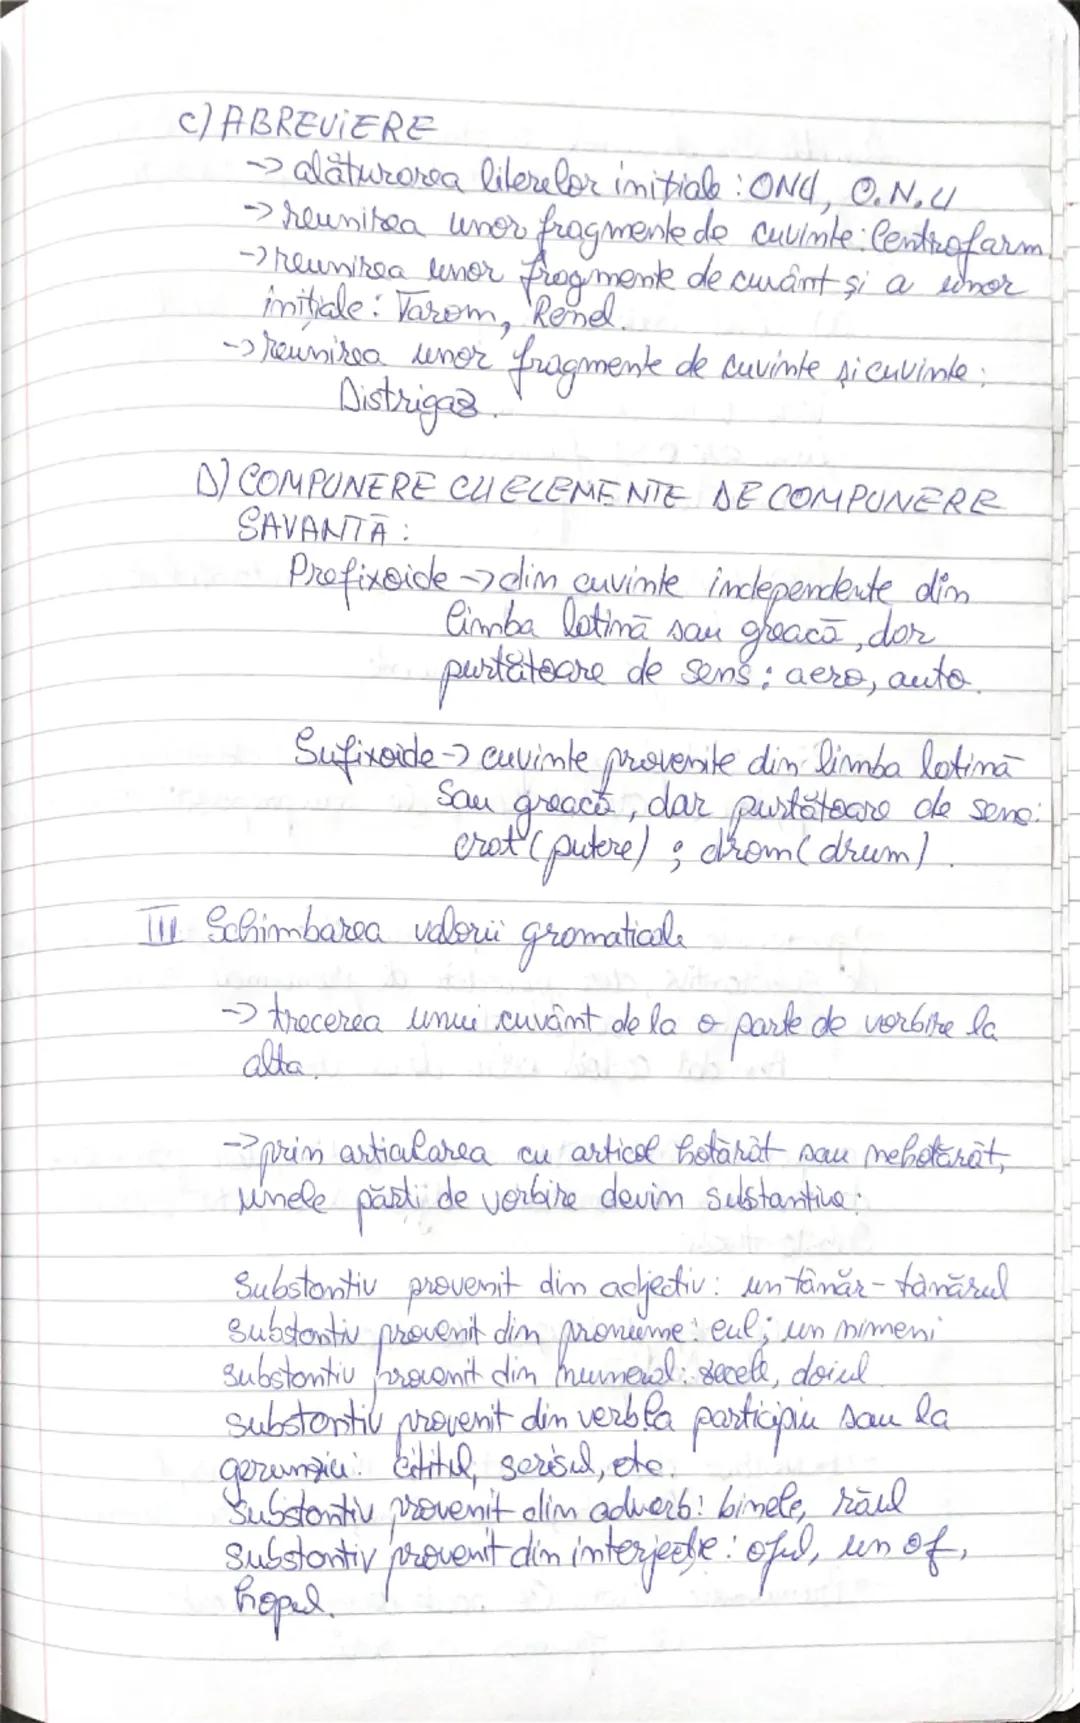 c) ABREVIERE
-> alăturarea literelor inițiale : ONU, O.N.U
-> reunirea unor fragmente de cuvinte: Centrofarm
-> reunirea unor fragmente de cuvânt și a unor
inițiale : Tarom, Renel.
-> reunirea unor fragmente de cuvinte și cuvinte :
Distrigaz.
D) COMPUNERE CU ELEMENTE DE COMPUNERE
SAVANTĂ :
Prefixoide -> din cuvinte independente din
limba latină sau greacă, dar
purtătoare de sens : aero, auto.
Sufixoide -> cuvinte provenite din limba latină
sau greacă, dar purtătoare de sens:
crat (putere) ; drom (drum).
III Schimbarea valorii gramaticale
-> trecerea unui cuvânt de la o parte de vorbire la
alta.
-> prin articularea cu articol hotărât sau nehotărât,
unele părți de vorbire devin substantive:
Substantiv provenit din adjectiv: un tânăr - tânărul
substantiv provenit din pronume: eul; un nimeni
substantiv provenit din numeral: zecele, doiul
substantiv provenit din verb la participiu sau la
gerunziu: cititul, scrisul, etc.
Substantiv provenit din adverb: binele, răul
substantiv provenit din interjecție: oful, un of,
hopul.